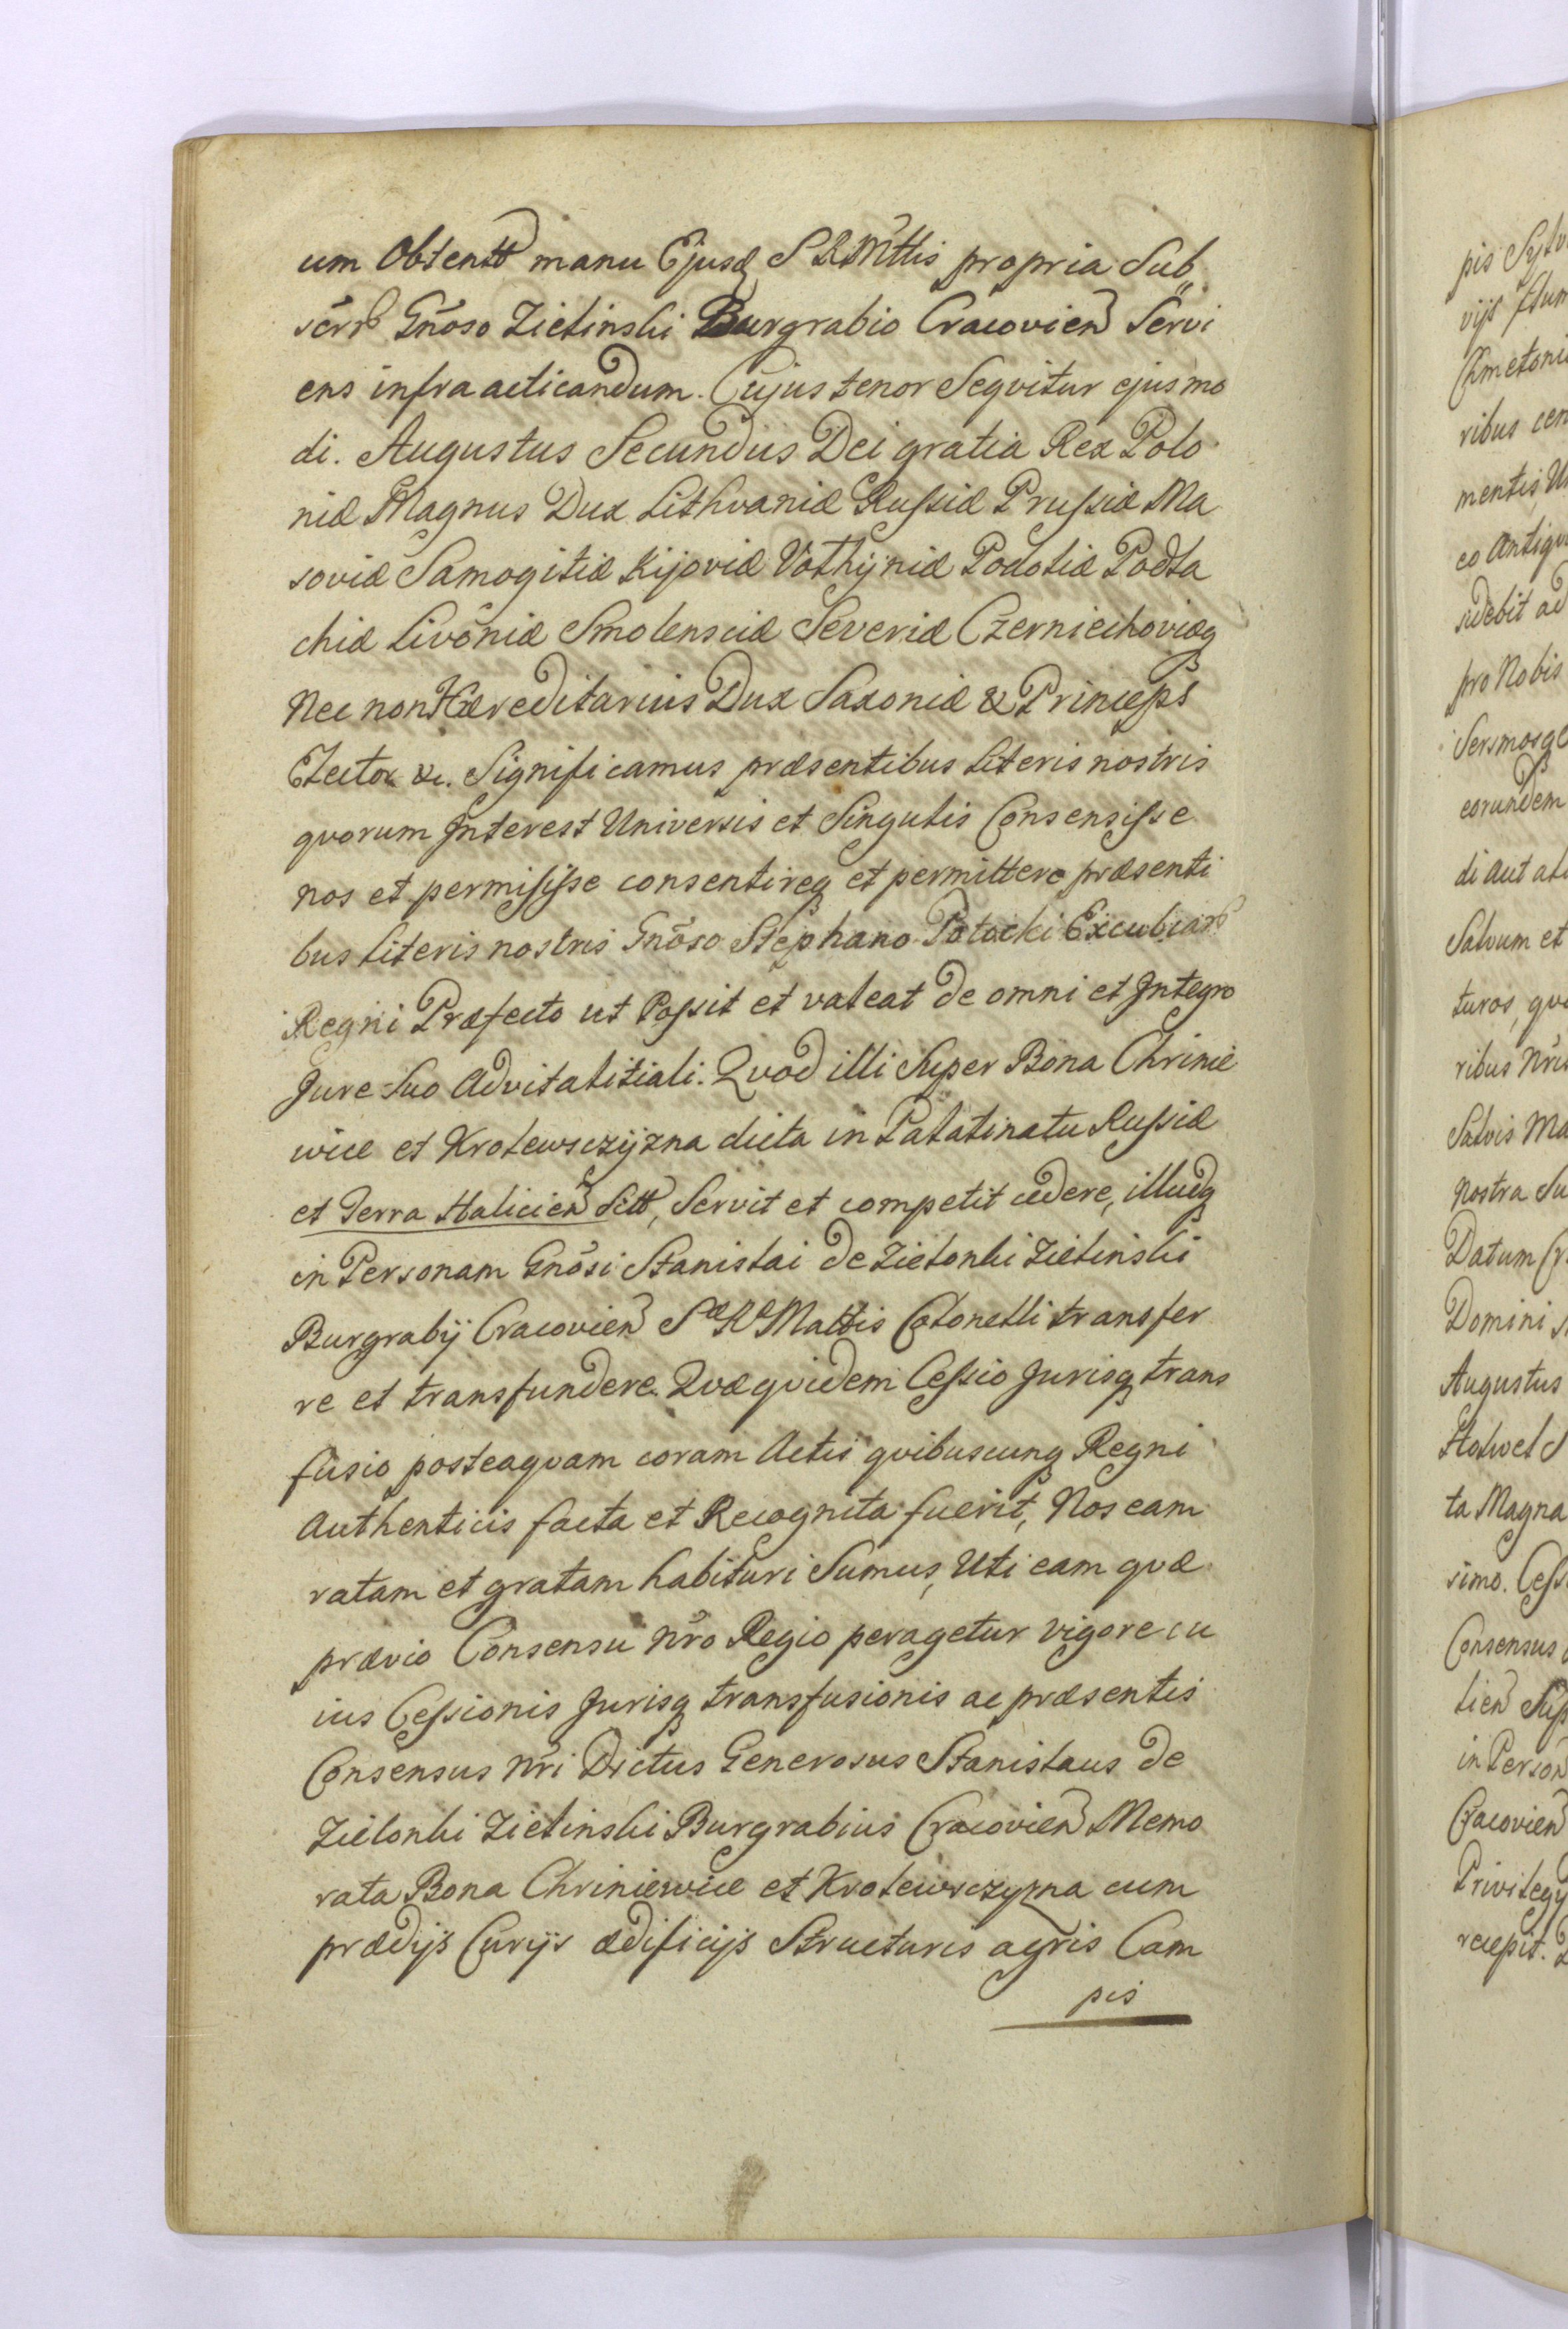 um Obtentt manu Ejusd S R Mttis propria Sub„
scrib Gnoso Zielinski Burgrabio Cracovien Servi
ens infra acticandum. Cujus tenor Seqvitur ejusmo
di. Augustus Secundus Dei gratia Rex Polo
niæ Magnus Dux Lithvaniæ Rußiæ Prußiæ Ma
soviæ Samogitiæ Kijoviæ Vołhÿniæ Podoliæ Podla
chiæ Livoniæ Smolensciæ Severiæ Czerniechoviæq
Nec non Hæreditarius Dux Saxoniæ & Princeps
Elector &c. Significamus præsentibus Literis nostris
qvorum Interest Universis et Singulis Consensiſse
nos et permisiſse consentireq et permittere præsenti
bus Literis nostris Gnoso Stephano Potocki Excubiar
Regni Præfecto ut Poßit et valeat de omni et Integro
Jure Suo Advitalitiali. Qvod illi Super Bona Chrinie
wice et Krolewsczÿzna dicta in Palatinatu Rußiæ
et Terra Halicien Sitt, Servit et competit cedere, illudq
in Personam Gnosi Stanislai de Zielonki Zielinski
Burgrabÿ Cracovien Sæ Ræ Mattis Colonelli transfer
re et transfundere. Qvæ qvidem Ceßio Jurisq trans
fusio posteaqvam coram Actis qvibuscunq Regni
Authenticis facta et Recognita fuerit, Nos eam
ratam et gratam habituri Sumus, Uti eam qvæ
prævio Consensu Nro Regio peragetur vigore cu
ius Ceßionis Jurisq transfusionis ac præsentis
Consensus Nri Dictus Generosus Stanislaus de
Zielonki Zielinski Burgrabius Cracovien Memo
rata Bona Chriniewice et Krolewsczyzna cum
prædijs Curijs ædificijs Structuris agris Cam
pis
pis
vijs
ribus
mentis
eo Antiqv
sidebit ad
pro Nobis
eorundem
di aut
Salvum et
turos,
ribus Nris
Salvis Ma
Nostra Su
Datum
Domini
Augustus
ta Magna
simo.
Consensus
lien
in Person
Cracovien
recepit.